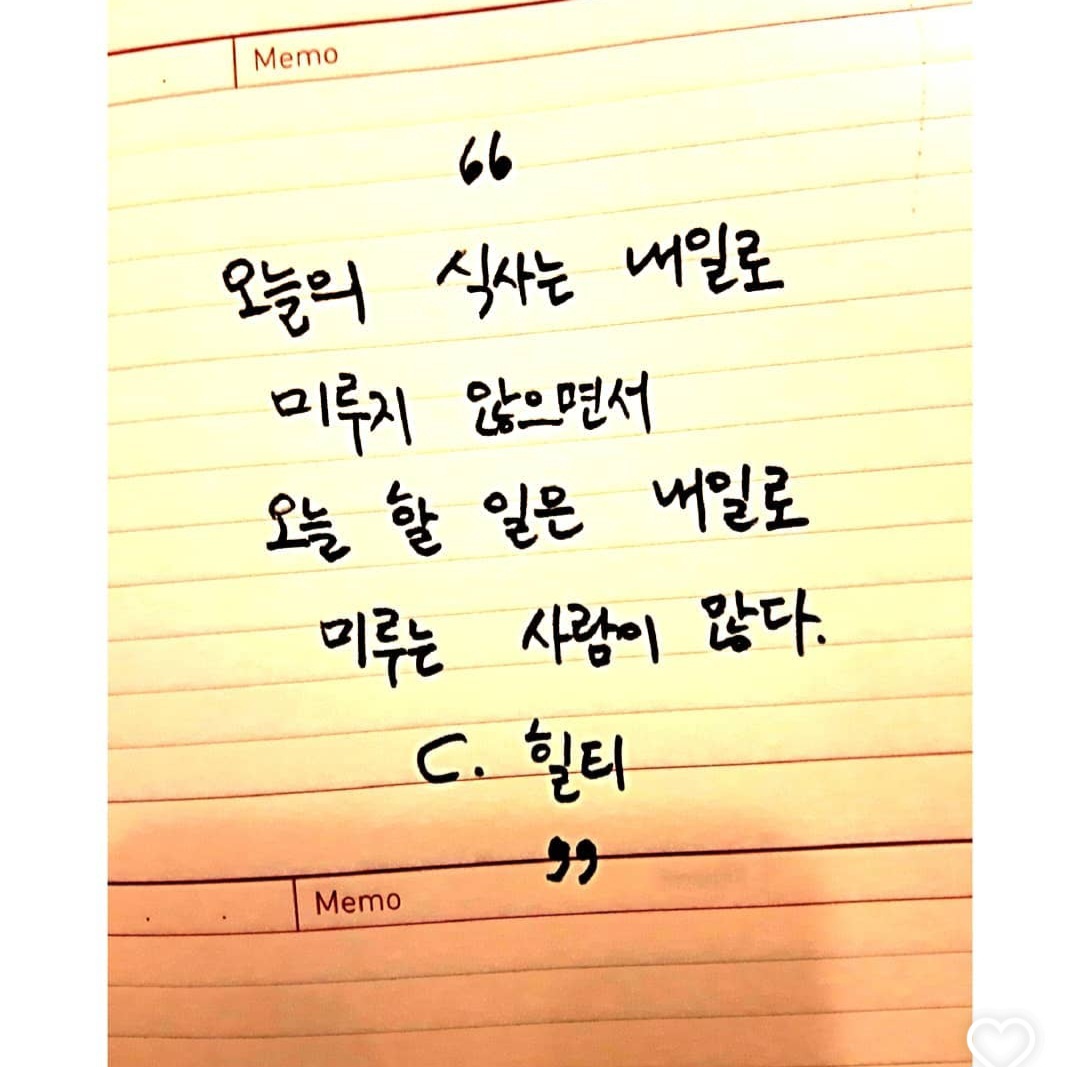 Memo
“
오늘의 식사는 내일로
미루지 않으면서
오늘 할 일은 내일로
미루는 사람이 많다.
C. 힐티
”
Memo